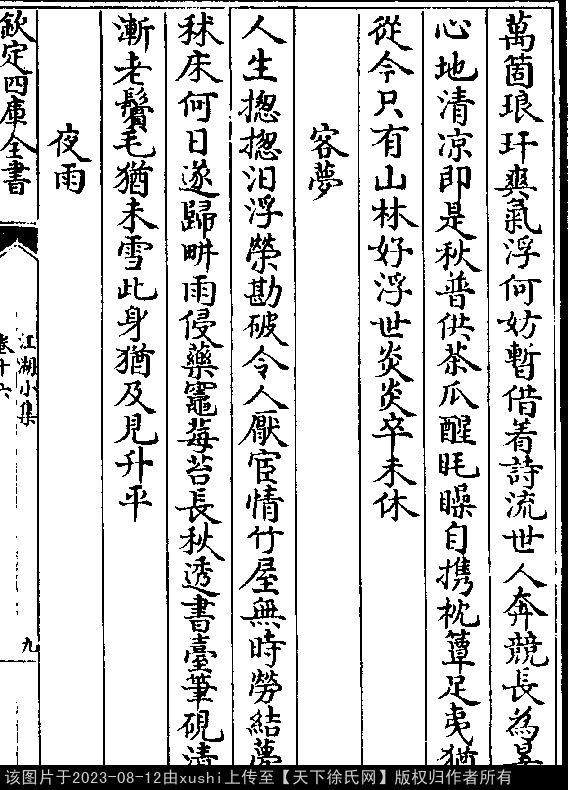 萬箇琅玕爽氣浮何妨暫借着詩流世人奔競長為
心地清凉即是秋普供茶瓜醒眊矂自携枕簟足夷猶
從今只有山林好浮世炎炎卒未休
客夢
人生揔揔汩浮榮勘破令人厭宦情竹屋無時勞結夢
秫床何日遂歸畊雨侵藥竈莓苔長秋透書臺筆硯清
漸老鬢毛猶未雪此身猶及見升平
夜雨
欽定四庫全書
江湖小集
卷十六
九
该图片于2023-08-12由xushi上传至【天下徐氏网】版权归作者所有